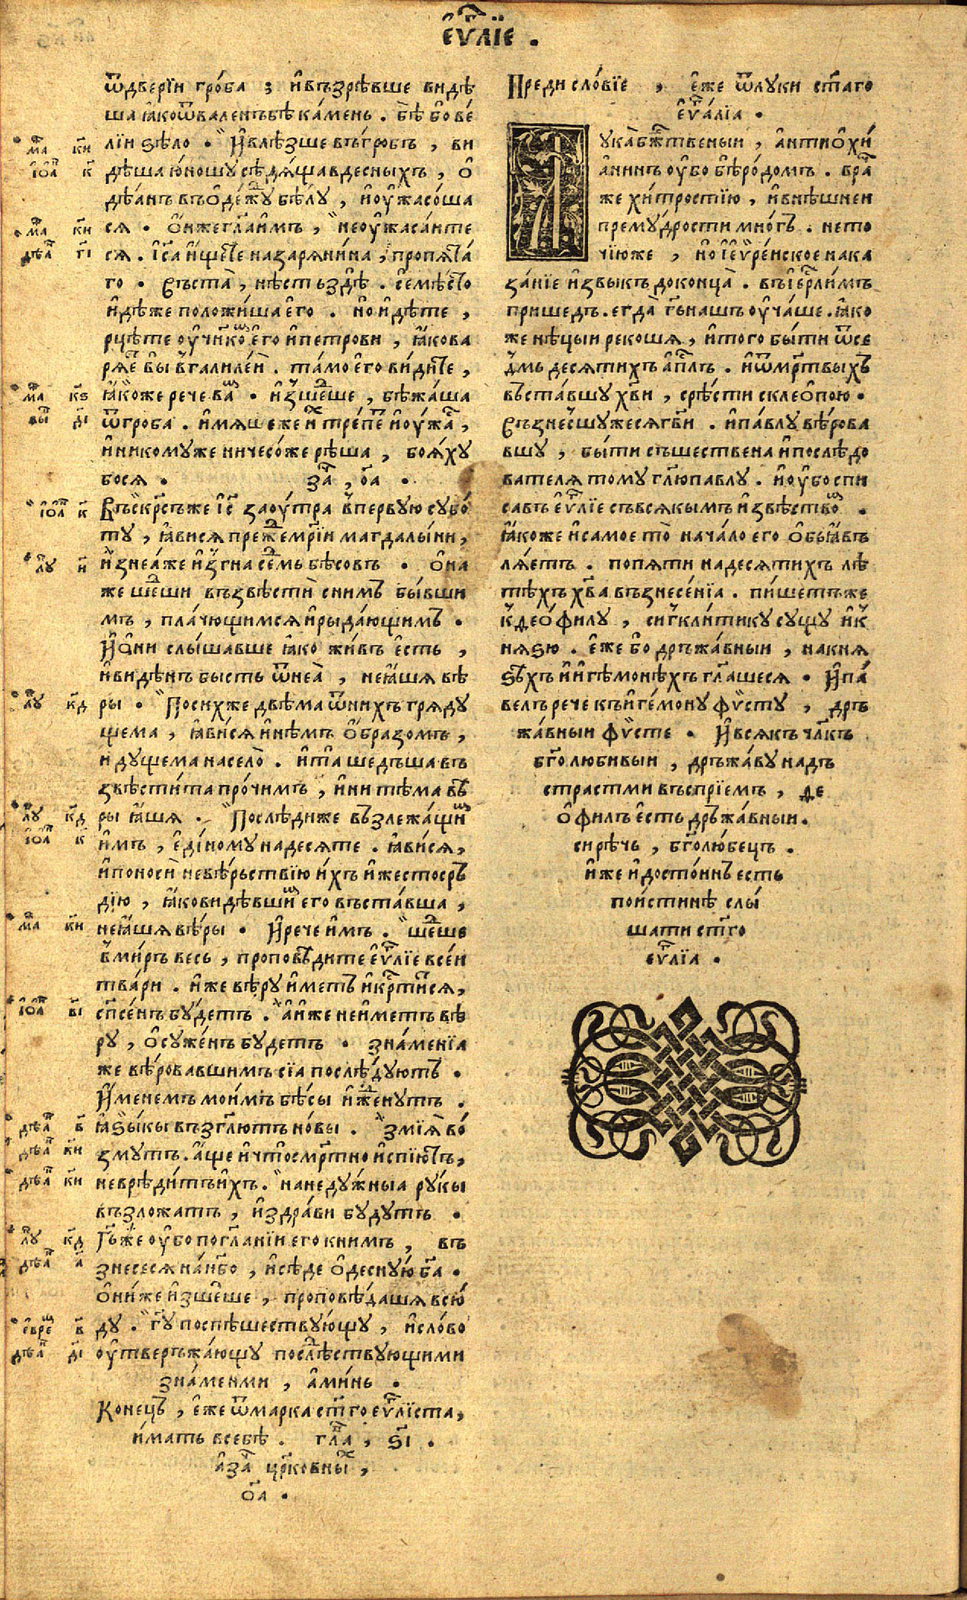 є҆ѵⷢ҇лїе .
ѿдверїи гро́ба ; и҆възрѣвше видѣ
ша ꙗ҆коѿваленъбѣ ка́мень . бѣ бо ве́
лїи ѕѣло . И҆влѣзше въгробъ , ви
дѣша ю҆ношу сѣдѧща вдесныхъ , ѻ҆
дѣанъ въѻдеждꙋ бѣлу , и҆оу҆жасоша
сѧ . ѻ҆нжеглаимъ , неоу҆жасаите
сѧ . І҆са и҆щете назарѧнина , пропѧта
го . Въста̀ , нѣсть здѣ . се мѣсто
и҆дѣже положи́ша его . но и҆дѣте ,
рцѣте оу҆чнкѡ его и҆петрови , ꙗ҆кова
рѧе вы вгалилеи . тамо его ви́дите ,
ꙗ҆коже рече ва . и҆зше́ше , бѣжа́ша
ѿгроба . и҆мѧше же и҆ тре́пе и҆оу҆жа ,
и҆никомуже ничесо́же рѣша , боѧ́ху
босѧ . за , оа .
Въскрсъже і҆с заоу҆тра впервую субо́
ту , ꙗ҆висѧ преже мрїи магдалы́ни ,
и҆знеѧже и҆згна се́мь бѣсовъ . ѻ҆на
же ше́ши възвѣсти снимъ бы́вши
мъ , пла́чющимсѧ и҆рыда́ющимъ .
И҆ѻни слы́шавше ꙗ҆ко жи́въ е҆сть ,
и҆видѣнъ бысть ѿнеа̀ , неꙗ҆шѧ вѣ
ры . Посихже двѣма ѿнихъ грѧду
щема , ꙗ҆ви́сѧ и҆нѣмъ ѻ҆́бразомъ ,
и҆душема насело̀ . и҆та шедъша въ
звѣсти́та про́чимъ , и҆ни тѣма въ
ры ꙗ҆шѧ . Послѣдиже възлежа́щи
и҆мъ , е҆ди́ному надесѧте . ꙗ҆ви́сѧ ,
и҆поноси невѣрьствїю и҆хъ и҆жестосръ
дїю , ꙗ҆ковидѣвши его въста́вша ,
неꙗ҆шѧ вѣ́ры . И҆рече и҆мъ . ше́ше
вмиръ весь , проповѣдите е҆ѵⷢ҇лїе все́и
тва́ри . и҆же вѣру и҆меть и҆кртисѧ ,
спсенъ бу́деть . а҆и҆же неи҆меть вѣ
ру , ѻ҆суже́нъ будетъ . зна́менїа
же вѣровавшимъ сїа послѣдують .
И҆менемъ мои́мъ бѣсы и҆жденутъ .
ꙗ҆зы́кы възглютъ новы . змїѧ во́
змутъ . а҆ще и҆чтосмртно и҆спїють ,
невреди́тъи҆хъ . нанеду́жныа рукы
възложатъ , и҆здра́ви будутъ .
Гь́же оу҆бо погла́нїи его книмъ , въ
знесесѧ на́нбо , и҆сѣде ѻ҆десную ба .
ѻ҆ни́же и҆зше́ше , проповѣ́дашѧ всю́
ду . гу поспѣшествующу , и҆сло́во
оу҆твержа́ющу послѣствующими
зна́менми , а҆ми́нь .
Конецъ , е҆же ѿмарка стго еѵⷢ҇лїста ,
и҆мать всебѣ . гла , ѕі .
а҆за црковны ,
оа .
Преди сло́вїе , е҆же ѿлуки стаго
е҆ѵⷢ҇а́лїа .
Лука бжтвеныи , антиѻхи́
а҆нинъ оу҆бо бѣро́домъ . вра
же хи́тростїю , и҆внѣшнеи
прему́дрости мно́гъ . нето
чїюже , но і҆еѵре́нское нака
за́нїе и҆звыкъ доконца̀ . въі҆ерлимъ
пришедъ . егда̀ гьнашъ оу҆ча́ше . ꙗ҆ко
же нѣцыи рекошѧ , и҆того бы́ти ѿсе
дмь десѧти́хъ апⷭ҇лъ . и҆ѿмртвыхъ
въста́вшу хви , срѣ́сти склеѻпою .
Възне́сшужесѧгви . и҆па́влу вѣрова
вшу , бы́ти съшествена и҆послѣдо
вателѧ тому́ глюпавлу . и҆оу҆бо спи
савъ е҆ѵⷢ҇лїе съвсѧкымъ и҆звѣствѡ .
ꙗ҆коже и҆самое то̀ нача́ло его ѻ҆бьꙗ҆въ
лѧ́етъ . попѧ́ти надесѧтихъ лѣ
тѣхъ хва възнесе́нїа . пи́шетьже
кѳеѻфилу , сигкли́тику сущу и҆к
нѧзю . е҆же бо дръжа́вныи , накнѧ
ѕьхъ и҆иге́монѣхъ гла́шесѧ . И҆па́
велъ рече къиге́мону фѵсту , дръ
жа́вныи фѵсте . И҆всѧкъ члкъ
бго любивыи , дръжа́ву надъ
страстми въспрїемъ , ѳе
ѻ҆филъ есть дръжа́вныи .
сирѣчь , бголю́бецъ .
и҆же и҆досто́инъ есть
пои́стинѣ слы́
шати стго
еѵⷢ҇лїа .